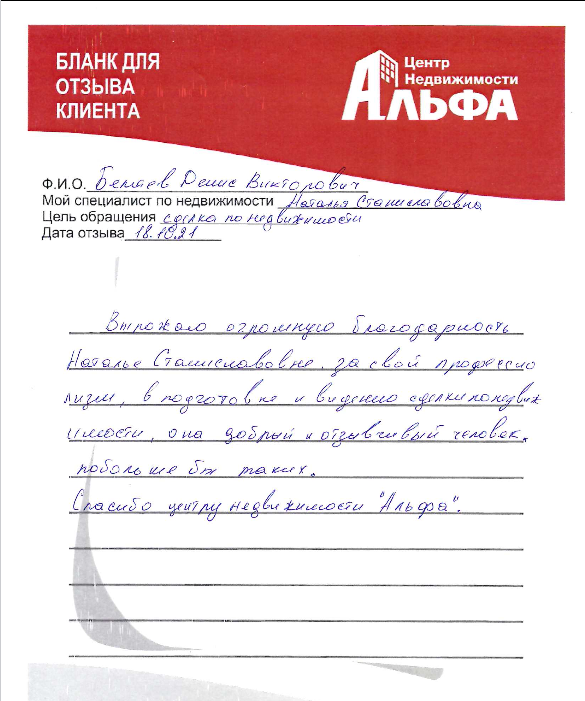 БЛАНК ДЛЯ
ОТЗЫВА
КЛИЕНТА
Центр
Недвижимости
АЛЬФА
Ф.И.О. Беляев Денис Викторович
Мой специалист по недвижимости Наталья Станиславовна
Цель обращения сделка по недвижимости
Дата отзыва 18.10.21
Выражаю огромную благодарность
Наталье Станиславовне, за свой професcио
лизм, в подготовке и видению сделки по недвиж
имости, она добрый и отзывчивый человек,
побольше бы таких.
Спасибо центру недвижимости "Альфа".